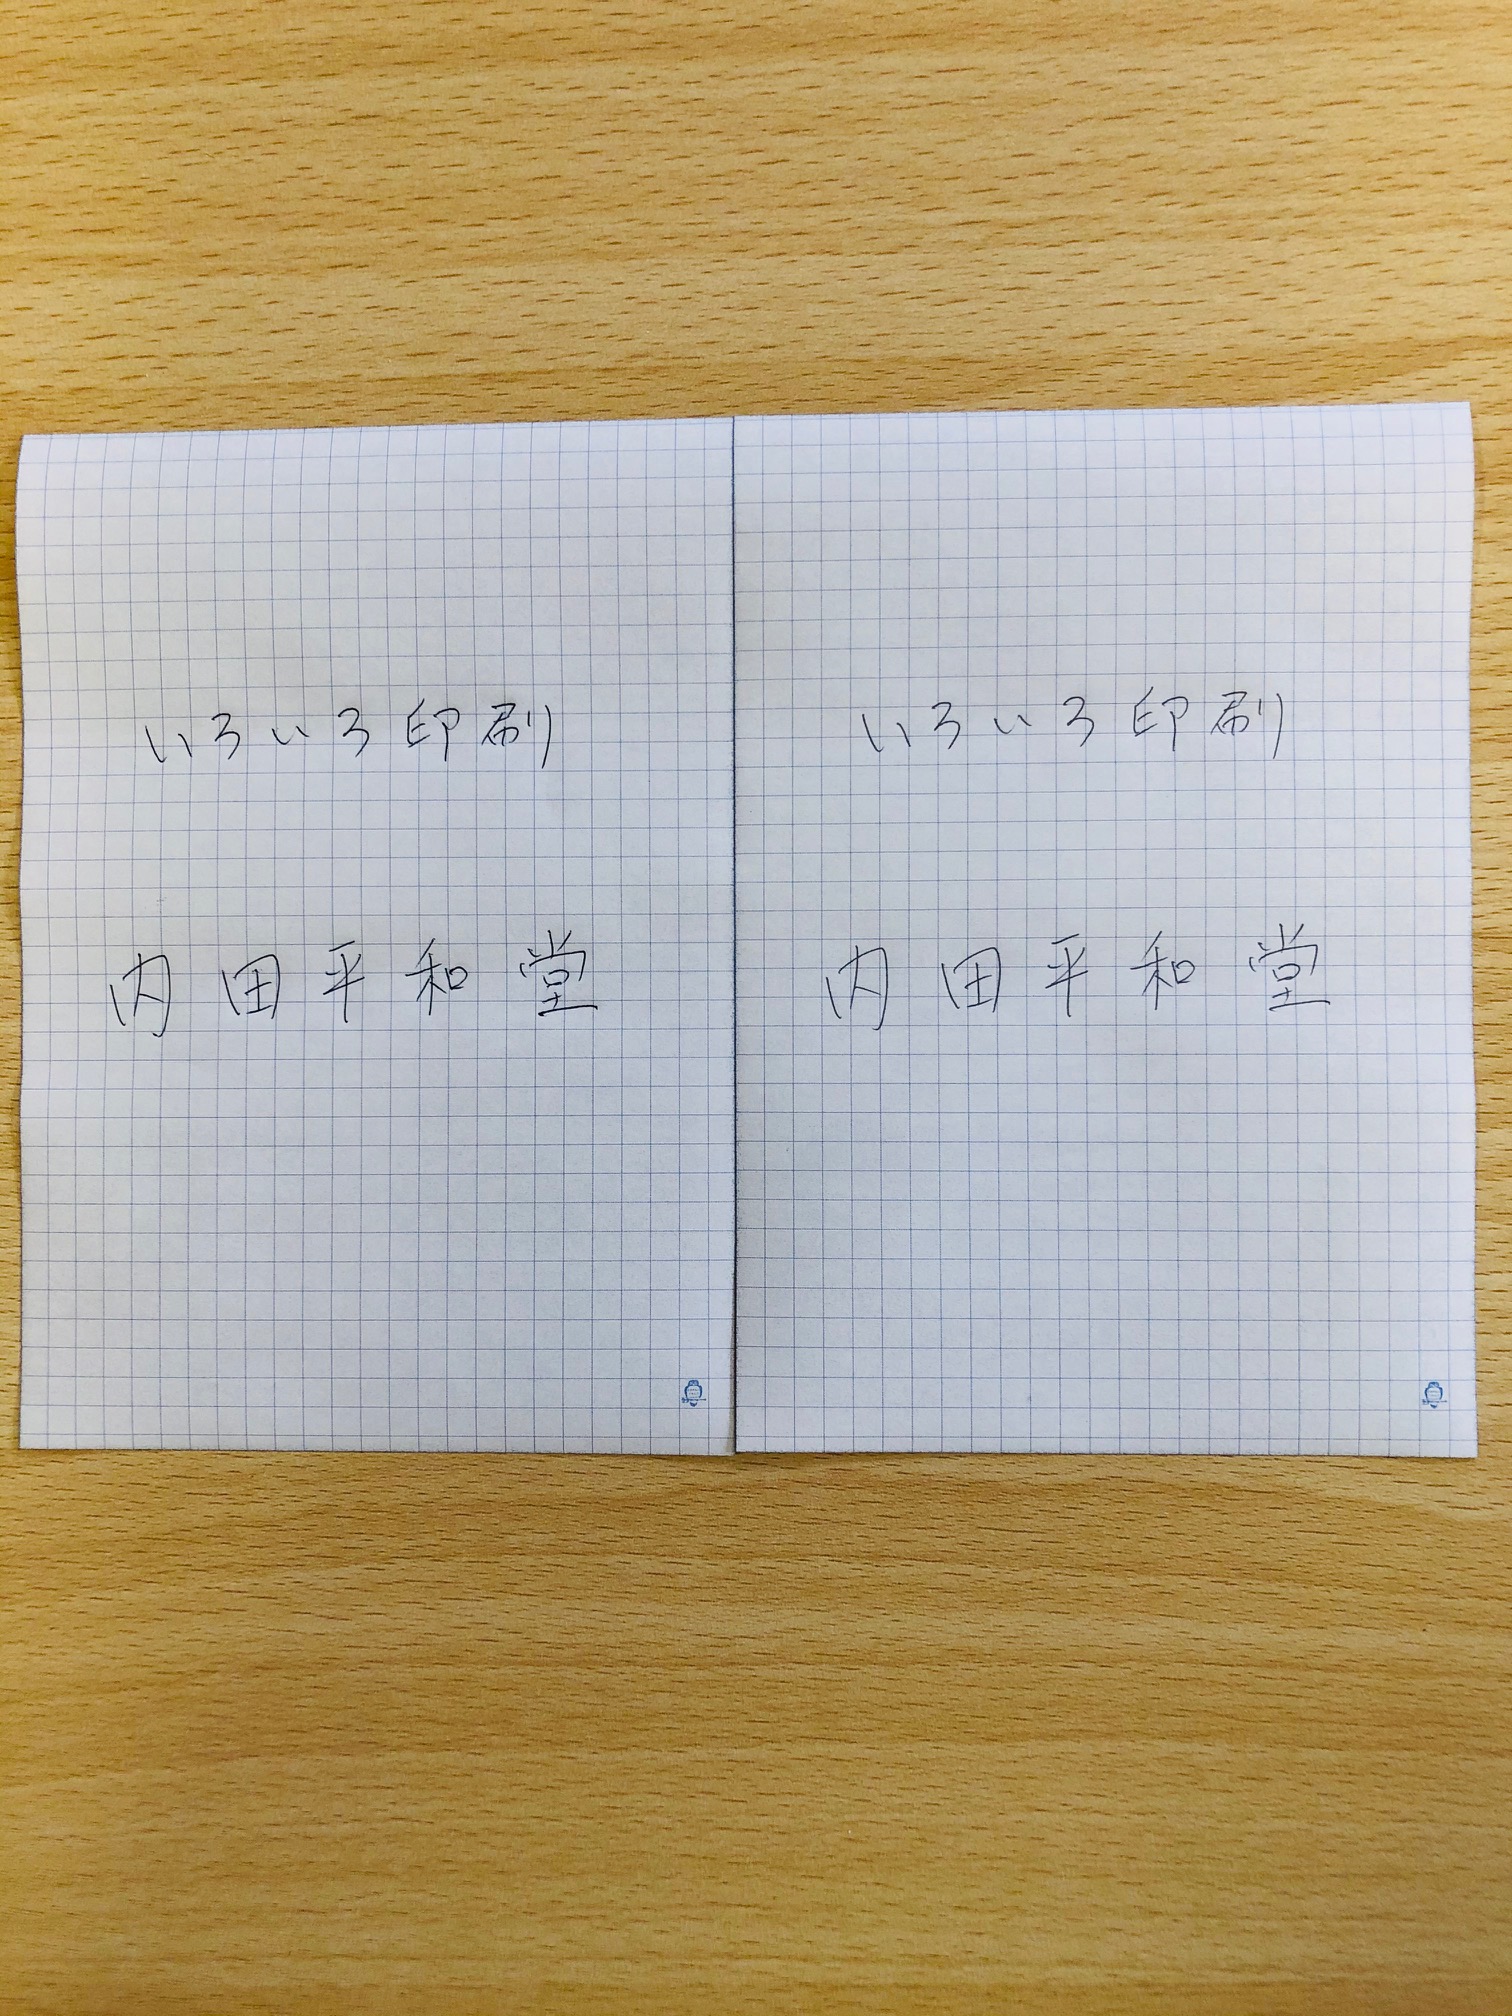 いろいろ印刷
内田平和堂
いろいろ印刷
内田平和堂